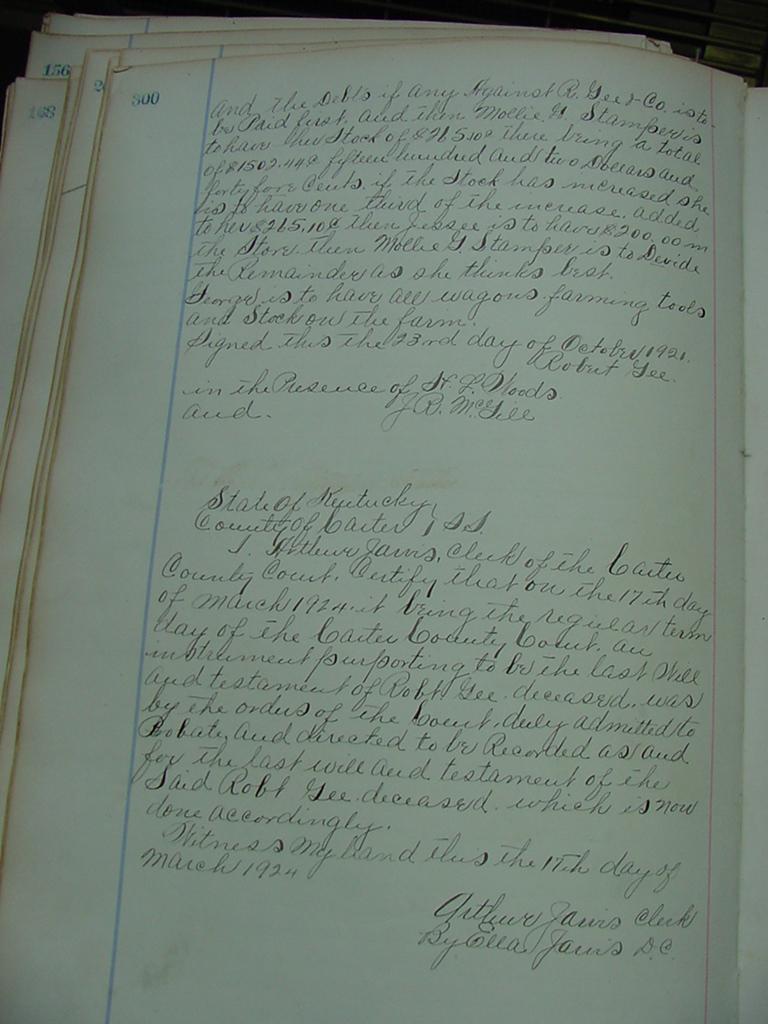 156
2
168
300
And the Debts if any Against R. Gee & Co. is to
be Paid first, and then Mollie G. Stamper is
to have her Stock of $265.10¢ there being a total
of $1502.44¢ fifteen hundred and two Dollars and
forty fore Cents. if the Stock has increased she
is to have one third of the increase. added
to her $265.10¢ then Jessee is to have $200.00 in
the Store. then Mollie G. Stamper is to Devide
the Remainder as she thinks best.
George is to have all wagons farming tools
and Stock on the farm.
Signed this the 23rd day of October 1921.
Robert Gee.
in the Presence of H. L. Woods
and. J. R. McGill
State of Kentucky
County of Carter SS.
I. Arthur Jarvis, Clerk of the Carter
County Court. Certify that on the 17th day
of March 1924. it being the regular term
day of the Carter County Court. an
instrument purporting to be the last Will
and testament of Robt Gee. deceased. was
by the orders of the Court. duly admitted to
Probate and directed to be Recorded as and
for the last will and testament of the
Said Robt Gee. deceased. which is now
done accordingly.
Witness My hand this the 17th day of
March 1924
Arthur Jarvis Clerk
By Ella Jarvis D.C.